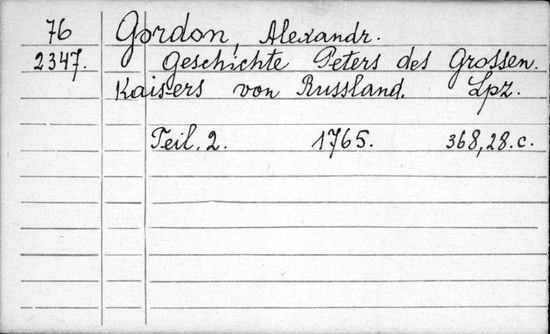 76 Gordon, Alexandr.
2347. Geschichte Peters des Grossen.
Kaisers von Russland. Lpz.
Teil. 2. 1765. 368,28.c.